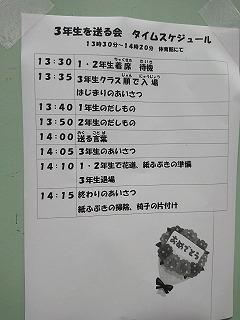 ３年生を送る会　タイムスケジュール
１３時３０分～１４時２０分　体育館にて
13:30　１・２年生着席　待機
13:35　３年生クラス順で入場
はじまりのあいさつ
13:40　１年生のだしもの
13:50　２年生のだしもの
14:00　送る言葉
14:05　３年生のあいさつ
14:10　１・２年生で花道、紙ふぶきの準備
３年生退場
14:15　終わりのあいさつ
紙ふぶきの掃除、椅子の片付け
おめでとう